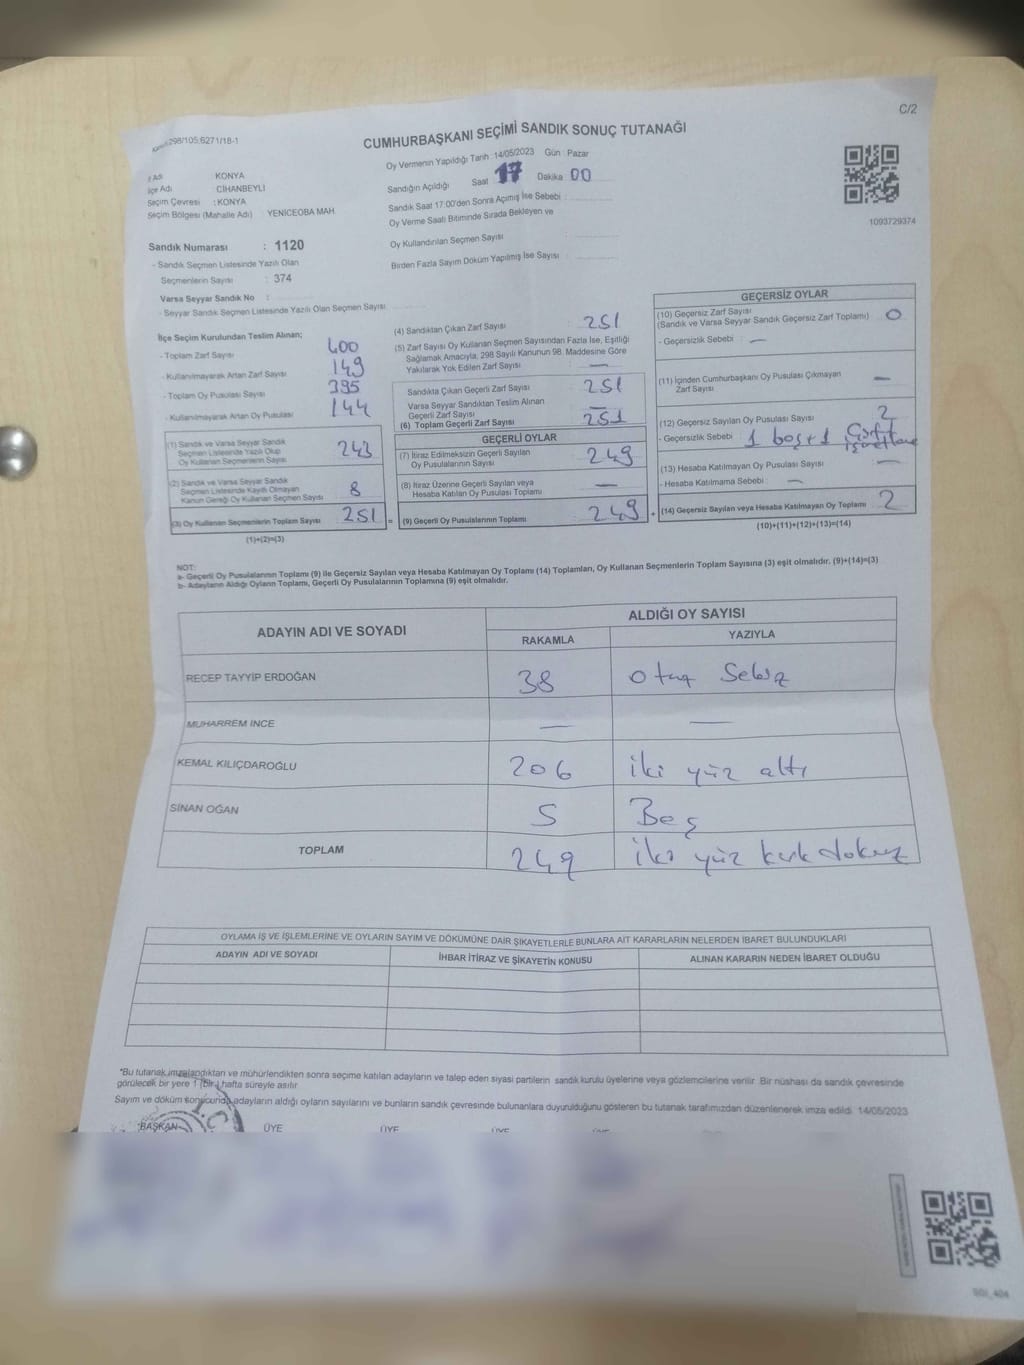 C/2
298/105.6271/18-1
CUMHURBAŞKANI SEÇİMİ SANDIK SONUÇ TUTANAĞI
Oy Vermenin Yapıldığı Tarih :14/05/2023 Gün : Pazar
Sandığın Açıldığı Saat 17 Dakika 00
Sandık Saat 17:00'den Sonra Açımış İse Sebebi :
Oy Verme Saati Bitiminde Sırada Bekleyen ve
Oy Kullandırılan Seçmen Sayısı :
Birden Fazla Sayım Döküm Yapılmış İse Sayısı :
İl Adı : KONYA
İlçe Adı : CİHANBEYLİ
Seçim Çevresi : KONYA
Seçim Bölgesi (Mahalle Adı) YENİCEOBA MAH.
1093729374
Sandık Numarası : 1120
- Sandık Seçmen Listesinde Yazılı Olan
Seçmenlerin Sayısı : 374
Varsa Seyyar Sandık No :
- Seyyar Sandık Seçmen Listesinde Yazılı Olan Seçmen Sayısı
İlçe Seçim Kurulundan Teslim Alınan;
- Toplam Zarf Sayısı 400
- Kullanılmayarak Artan Zarf Sayısı 149
- Toplam Oy Pusulası Sayısı 395
- Kullanılmayarak Artan Oy Pusulası 144
(1) Sandık ve Varsa Seyyar Sandık
Seçmen Listesinde Yazılı Olup
Oy Kullanan Seçmenlerin Sayısı 243
(2) Sandık ve Varsa Seyyar Sandık
Seçmen Listesinde Kayıtlı Olmayan
Kanun Gereği Oy Kullanan Seçmen Sayısı 8
(3) Oy Kullanan Seçmenlerin Toplam Sayısı 251
(1)+(2)=(3)
(4) Sandıktan Çıkan Zarf Sayısı 251
(5) Zarf Sayısı Oy Kullanan Seçmen Sayısından Fazla İse, Eşitliği
Sağlamak Amacıyla, 298 Sayılı Kanunun 98. Maddesine Göre
Yakılarak Yok Edilen Zarf Sayısı —
Sandıkta Çıkan Geçerli Zarf Sayısı 251
Varsa Seyyar Sandıktan Teslim Alınan
Geçerli Zarf Sayısı —
(6) Toplam Geçerli Zarf Sayısı 251
GEÇERLİ OYLAR
(7) İtiraz Edilmeksizin Geçerli Sayılan
Oy Pusulalarının Sayısı 249
(8) İtiraz Üzerine Geçerli Sayılan veya
Hesaba Katılan Oy Pusulası Toplamı —
= (9) Geçerli Oy Pusulalarının Toplamı 249
GEÇERSİZ OYLAR
(10) Geçersiz Zarf Sayısı
(Sandık ve Varsa Seyyar Sandık Geçersiz Zarf Toplamı) 0
- Geçersizlik Sebebi : —
(11) İçinden Cumhurbaşkanı Oy Pusulası Çıkmayan
Zarf Sayısı —
(12) Geçersiz Sayılan Oy Pusulası Sayısı 2
- Geçersizlik Sebebi : 1 boş + 1
(13) Hesaba Katılmayan Oy Pusulası Sayısı —
- Hesaba Katılmama Sebebi : —
+ (14) Geçersiz Sayılan veya Hesaba Katılmayan Oy Toplamı 2
(10)+(11)+(12)+(13)=(14)
NOT:
a- Geçerli Oy Pusulalarının Toplamı (9) ile Geçersiz Sayılan veya Hesaba Katılmayan Oy Toplamı (14) Toplamları, Oy Kullanan Seçmenlerin Toplam Sayısına (3) eşit olmalıdır. (9)+(14)=(3)
b- Adayların Aldığı Oyların Toplamı, Geçerli Oy Pusulalarının Toplamına (9) eşit olmalıdır.
ADAYIN ADI VE SOYADI
ALDIĞI OY SAYISI
RAKAMLA YAZIYLA
RECEP TAYYİP ERDOĞAN 38 otuz Sekiz
MUHARREM İNCE — —
KEMAL KILIÇDAROĞLU 206 iki yüz altı
SİNAN OĞAN 5 Beş
TOPLAM 249 iki yüz kırk dokuz
OYLAMA İŞ VE İŞLEMLERİNE VE OYLARIN SAYIM VE DÖKÜMÜNE DAİR ŞİKAYETLERLE BUNLARA AİT KARARLARIN NELERDEN İBARET BULUNDUKLARI
ADAYIN ADI VE SOYADI İHBAR İTİRAZ VE ŞİKAYETİN KONUSU ALINAN KARARIN NEDEN İBARET OLDUĞU
*Bu tutanak imzalandıktan ve mühürlendikten sonra seçime katılan adayların ve talep eden siyasi partilerin sandık kurulu üyelerine veya gözlemcilerine verilir. Bir nüshası da sandık çevresinde
görülecek bir yere 1 (bir) hafta süreyle asılır.
Sayım ve döküm sonucunda adayların aldığı oyların sayılarını ve bunların sandık çevresinde bulunanlara duyurulduğunu gösteren bu tutanak tarafımızdan düzenlenerek imza edildi. 14/05/2023
BAŞKAN ÜYE ÜYE ÜYE